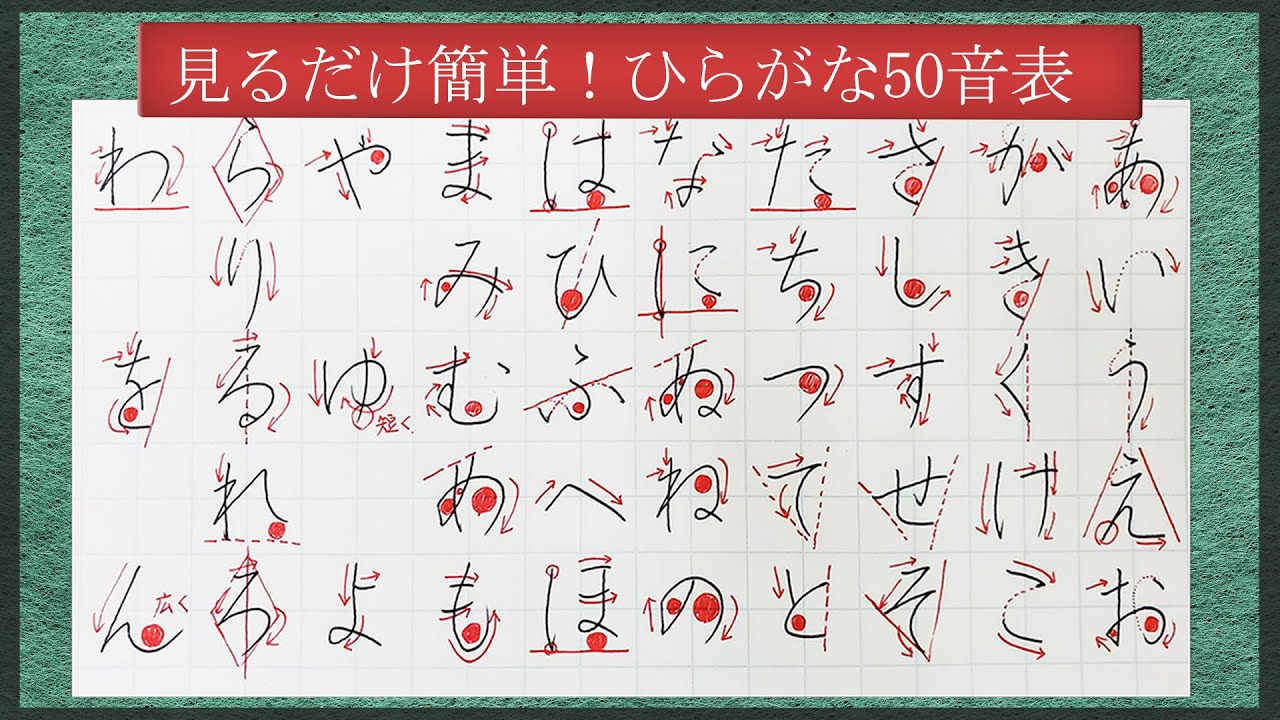 見るだけ簡単！ひらがな50音表
あいうえお
かきくけこ
さしすせそ
たちつてと
なにぬねの
はひふへほ
まみむめも
やゆよ
短く.
らりるれろ
わをん
広く